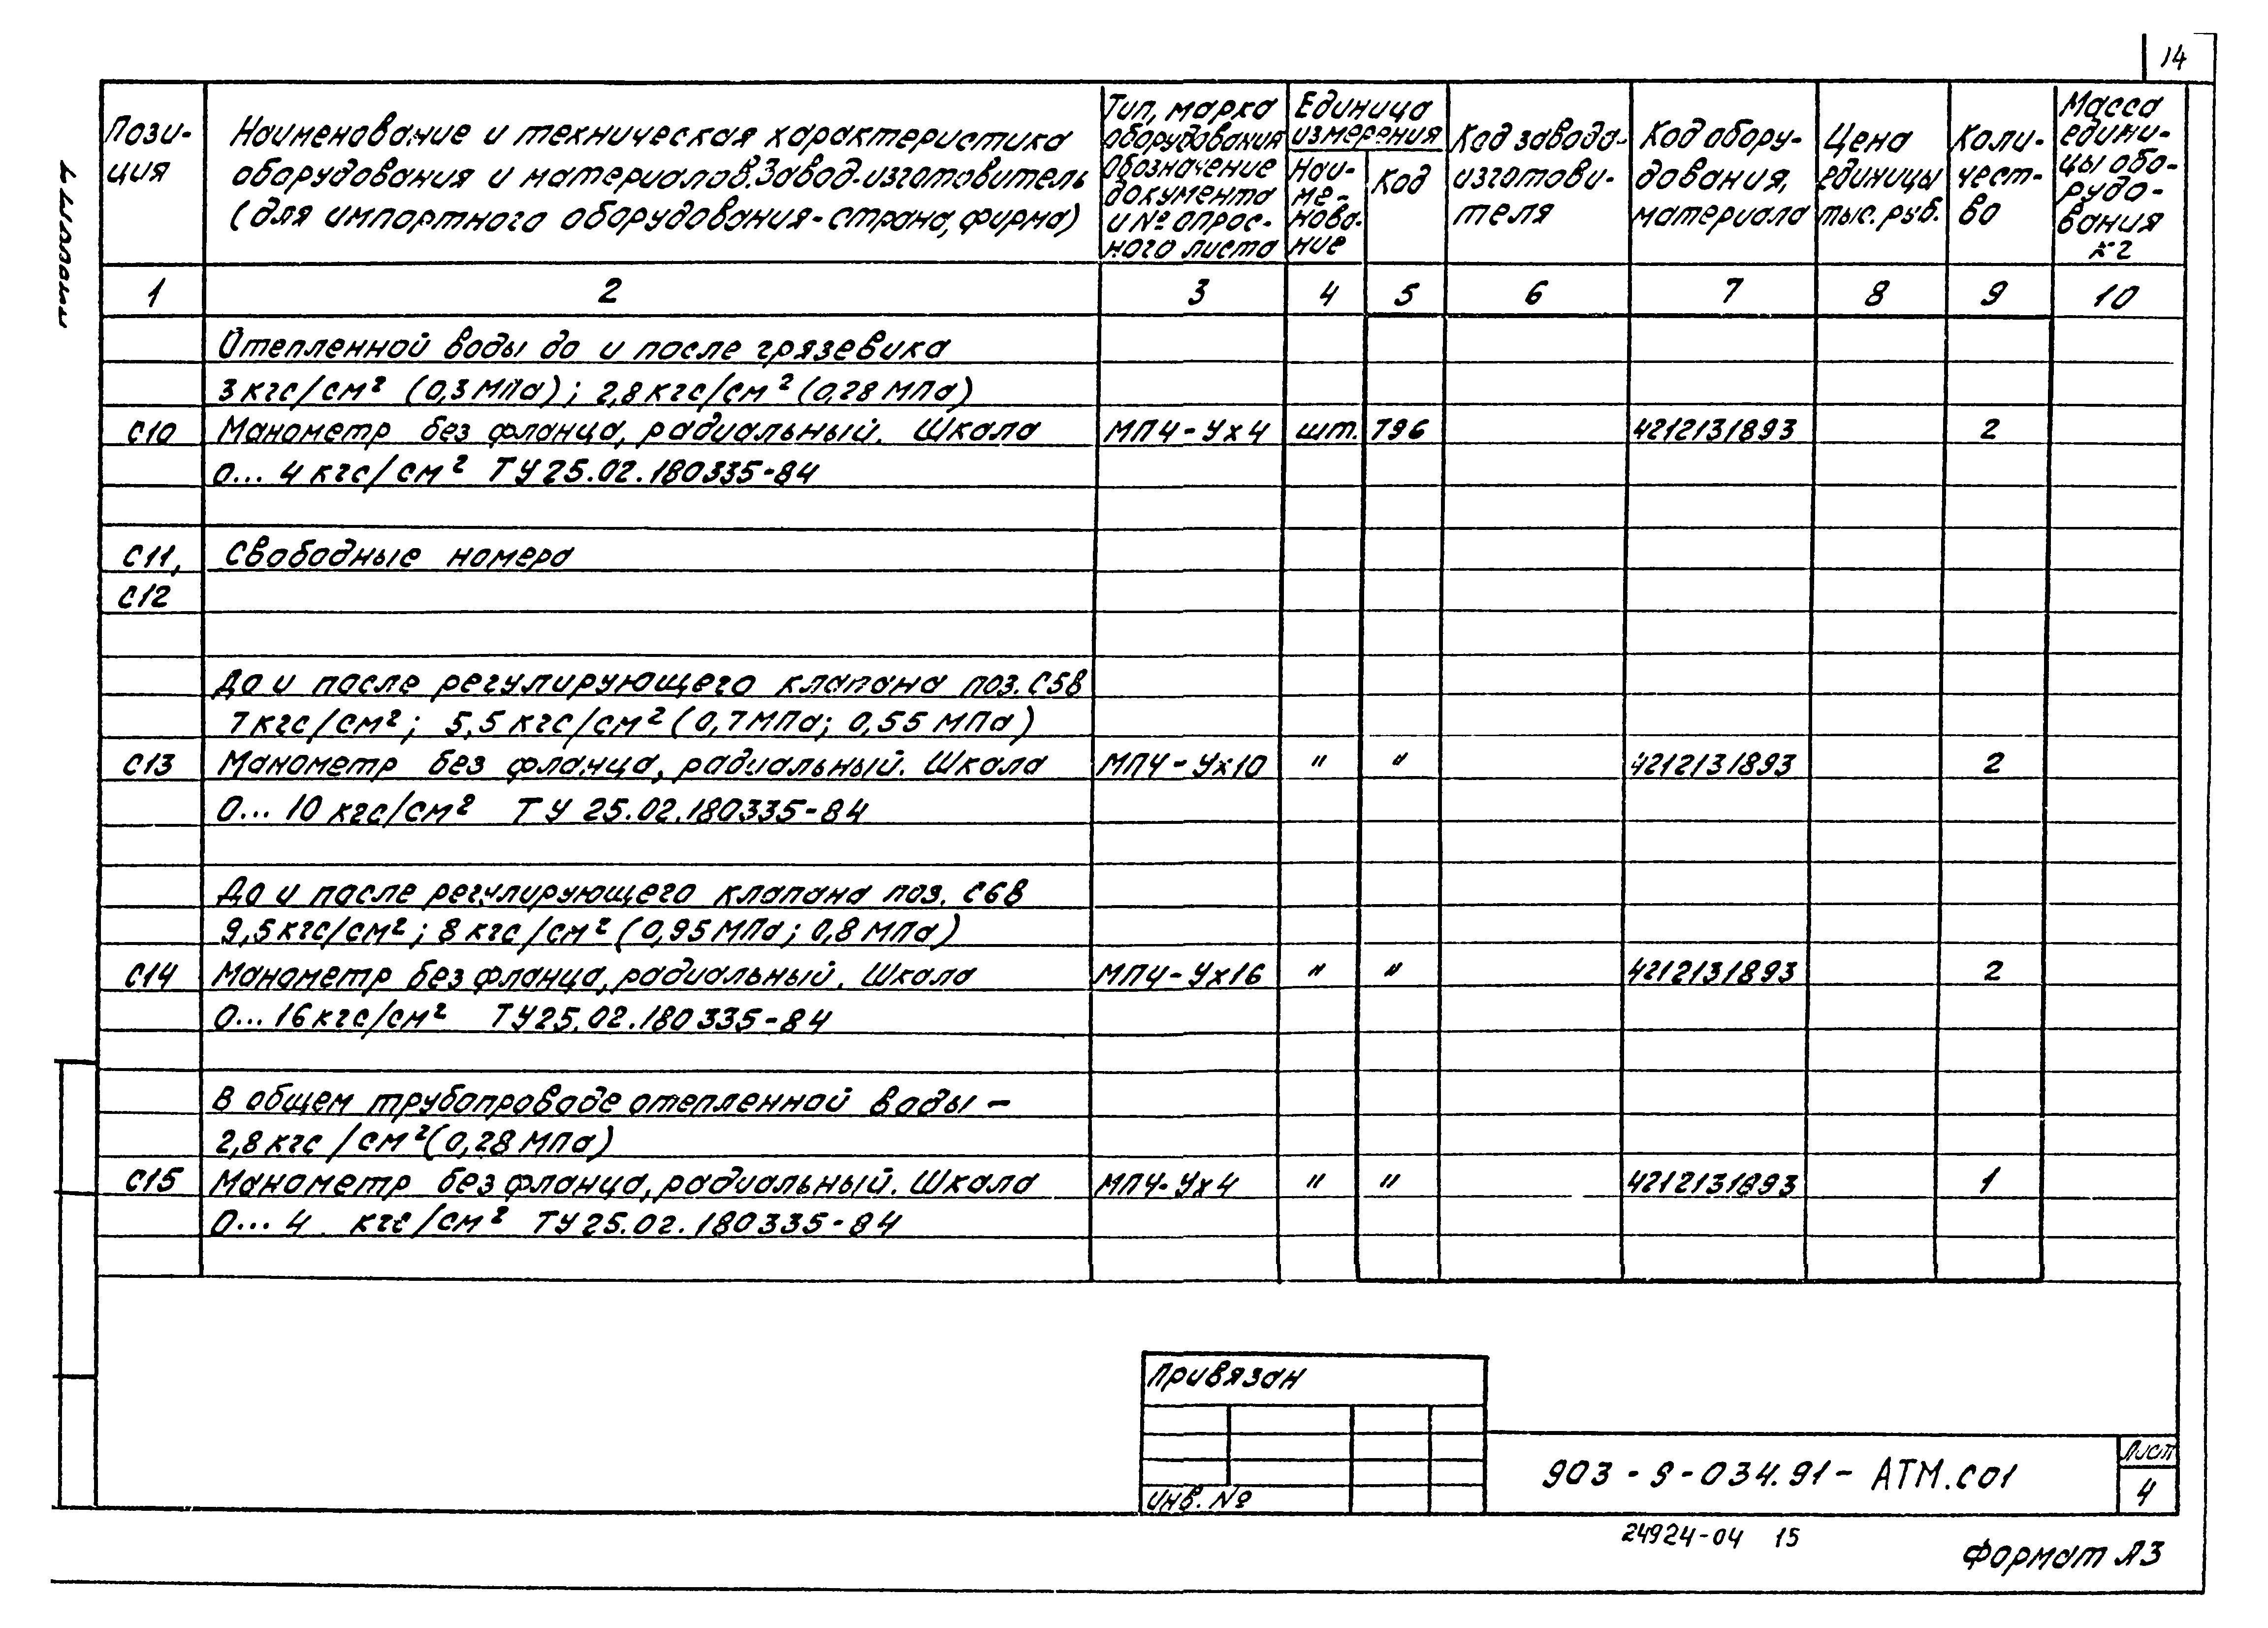 14
Пози-
ция
Наименование и техническая характеристика
оборудования и материалов. Завод-изготовитель
(для импортного оборудования-страна, фирма)
Тип, марка
оборудования
обозначение
документа
и № опрос-
ного листа
Единица
измерения
Наи-
ме-
нова-
ние
Код
Код завода-
изготови-
теля
Код обору-
дования,
материала
Цена
единицы
тыс. руб.
Коли-
чест-
во
Масса
едини-
цы обо-
рудо-
вания
кг
1 2 3 4 5 6 7 8 9 10
Отепленной воды до и после грязевика
3 кгс/см² (0,3 МПа); 2,8 кгс/см² (0,28 МПа)
С10 Манометр без фланца, радиальный. Шкала МПЧ-Ух4 шт. 796 4212131893 2
0... 4 кгс/см² ТУ 25.02.180335-84
С11, Свободные номера
С12
До и после регулирующего клапана поз. С5в
7 кгс/см²; 5,5 кгс/см² (0,7 МПа; 0,55 МПа)
С13 Манометр без фланца, радиальный. Шкала МПЧ-Ух10 " " 4212131893 2
0... 10 кгс/см² ТУ 25.02.180335-84
До и после регулирующего клапана поз. С6в
9,5 кгс/см²; 8 кгс/см² (0,95 МПа; 0,8 МПа)
С14 Манометр без фланца, радиальный. Шкала МПЧ-Ух16 " " 4212131893 2
0... 16 кгс/см² ТУ 25.02.180335-84
В общем трубопроводе отепленной воды –
2,8 кгс/см² (0,28 МПа)
С15 Манометр без фланца, радиальный. Шкала МПЧ-Ух4 " " 4212131893 1
0... 4 кгс/см² ТУ 25.02.180335-84
Привязан
Инв. №
903-9-034.91-АТМ.С01
Лист
4
24924-04 15
Формат А3